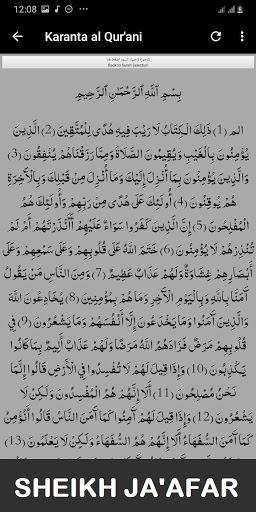 12:08
Karanta al Qur'ani
Back to Surah Selection
بِسْمِ ٱللَّهِ ٱلرَّحْمَٰنِ ٱلرَّحِيمِ
الم (1) ذَلِكَ الْكِتَابُ لَا رَيْبَ فِيهِ هُدًى لِلْمُتَّقِينَ (2) الَّذِينَ
يُؤْمِنُونَ بِالْغَيْبِ وَيُقِيمُونَ الصَّلَاةَ وَمِمَّا رَزَقْنَاهُمْ يُنْفِقُونَ (3)
وَالَّذِينَ يُؤْمِنُونَ بِمَا أُنْزِلَ إِلَيْكَ وَمَا أُنْزِلَ مِنْ قَبْلِكَ وَبِالْآخِرَةِ
هُمْ يُوقِنُونَ (4) أُولَئِكَ عَلَى هُدًى مِنْ رَبِّهِمْ وَأُولَئِكَ هُمُ
الْمُفْلِحُونَ (5) إِنَّ الَّذِينَ كَفَرُوا سَوَاءٌ عَلَيْهِمْ أَأَنْذَرْتَهُمْ أَمْ لَمْ
تُنْذِرْهُمْ لَا يُؤْمِنُونَ (6) خَتَمَ اللَّهُ عَلَى قُلُوبِهِمْ وَعَلَى سَمْعِهِمْ وَعَلَى
أَبْصَارِهِمْ غِشَاوَةٌ وَلَهُمْ عَذَابٌ عَظِيمٌ (7) وَمِنَ النَّاسِ مَنْ يَقُولُ
آمَنَّا بِاللَّهِ وَبِالْيَوْمِ الْآخِرِ وَمَا هُمْ بِمُؤْمِنِينَ (8) يُخَادِعُونَ اللَّهَ
وَالَّذِينَ آمَنُوا وَمَا يَخْدَعُونَ إِلَّا أَنْفُسَهُمْ وَمَا يَشْعُرُونَ (9) فِي
قُلُوبِهِمْ مَرَضٌ فَزَادَهُمُ اللَّهُ مَرَضًا وَلَهُمْ عَذَابٌ أَلِيمٌ بِمَا كَانُوا
يَكْذِبُونَ (10) وَإِذَا قِيلَ لَهُمْ لَا تُفْسِدُوا فِي الْأَرْضِ قَالُوا إِنَّمَا
نَحْنُ مُصْلِحُونَ (11) أَلَا إِنَّهُمْ هُمُ الْمُفْسِدُونَ وَلَكِنْ لَا
يَشْعُرُونَ (12) وَإِذَا قِيلَ لَهُمْ آمِنُوا كَمَا آمَنَ النَّاسُ قَالُوا أَنُؤْمِنُ
كَمَا آمَنَ السُّفَهَاءُ أَلَا إِنَّهُمْ هُمُ السُّفَهَاءُ وَلَكِنْ لَا يَعْلَمُونَ (13)
SHEIKH JA'AFAR